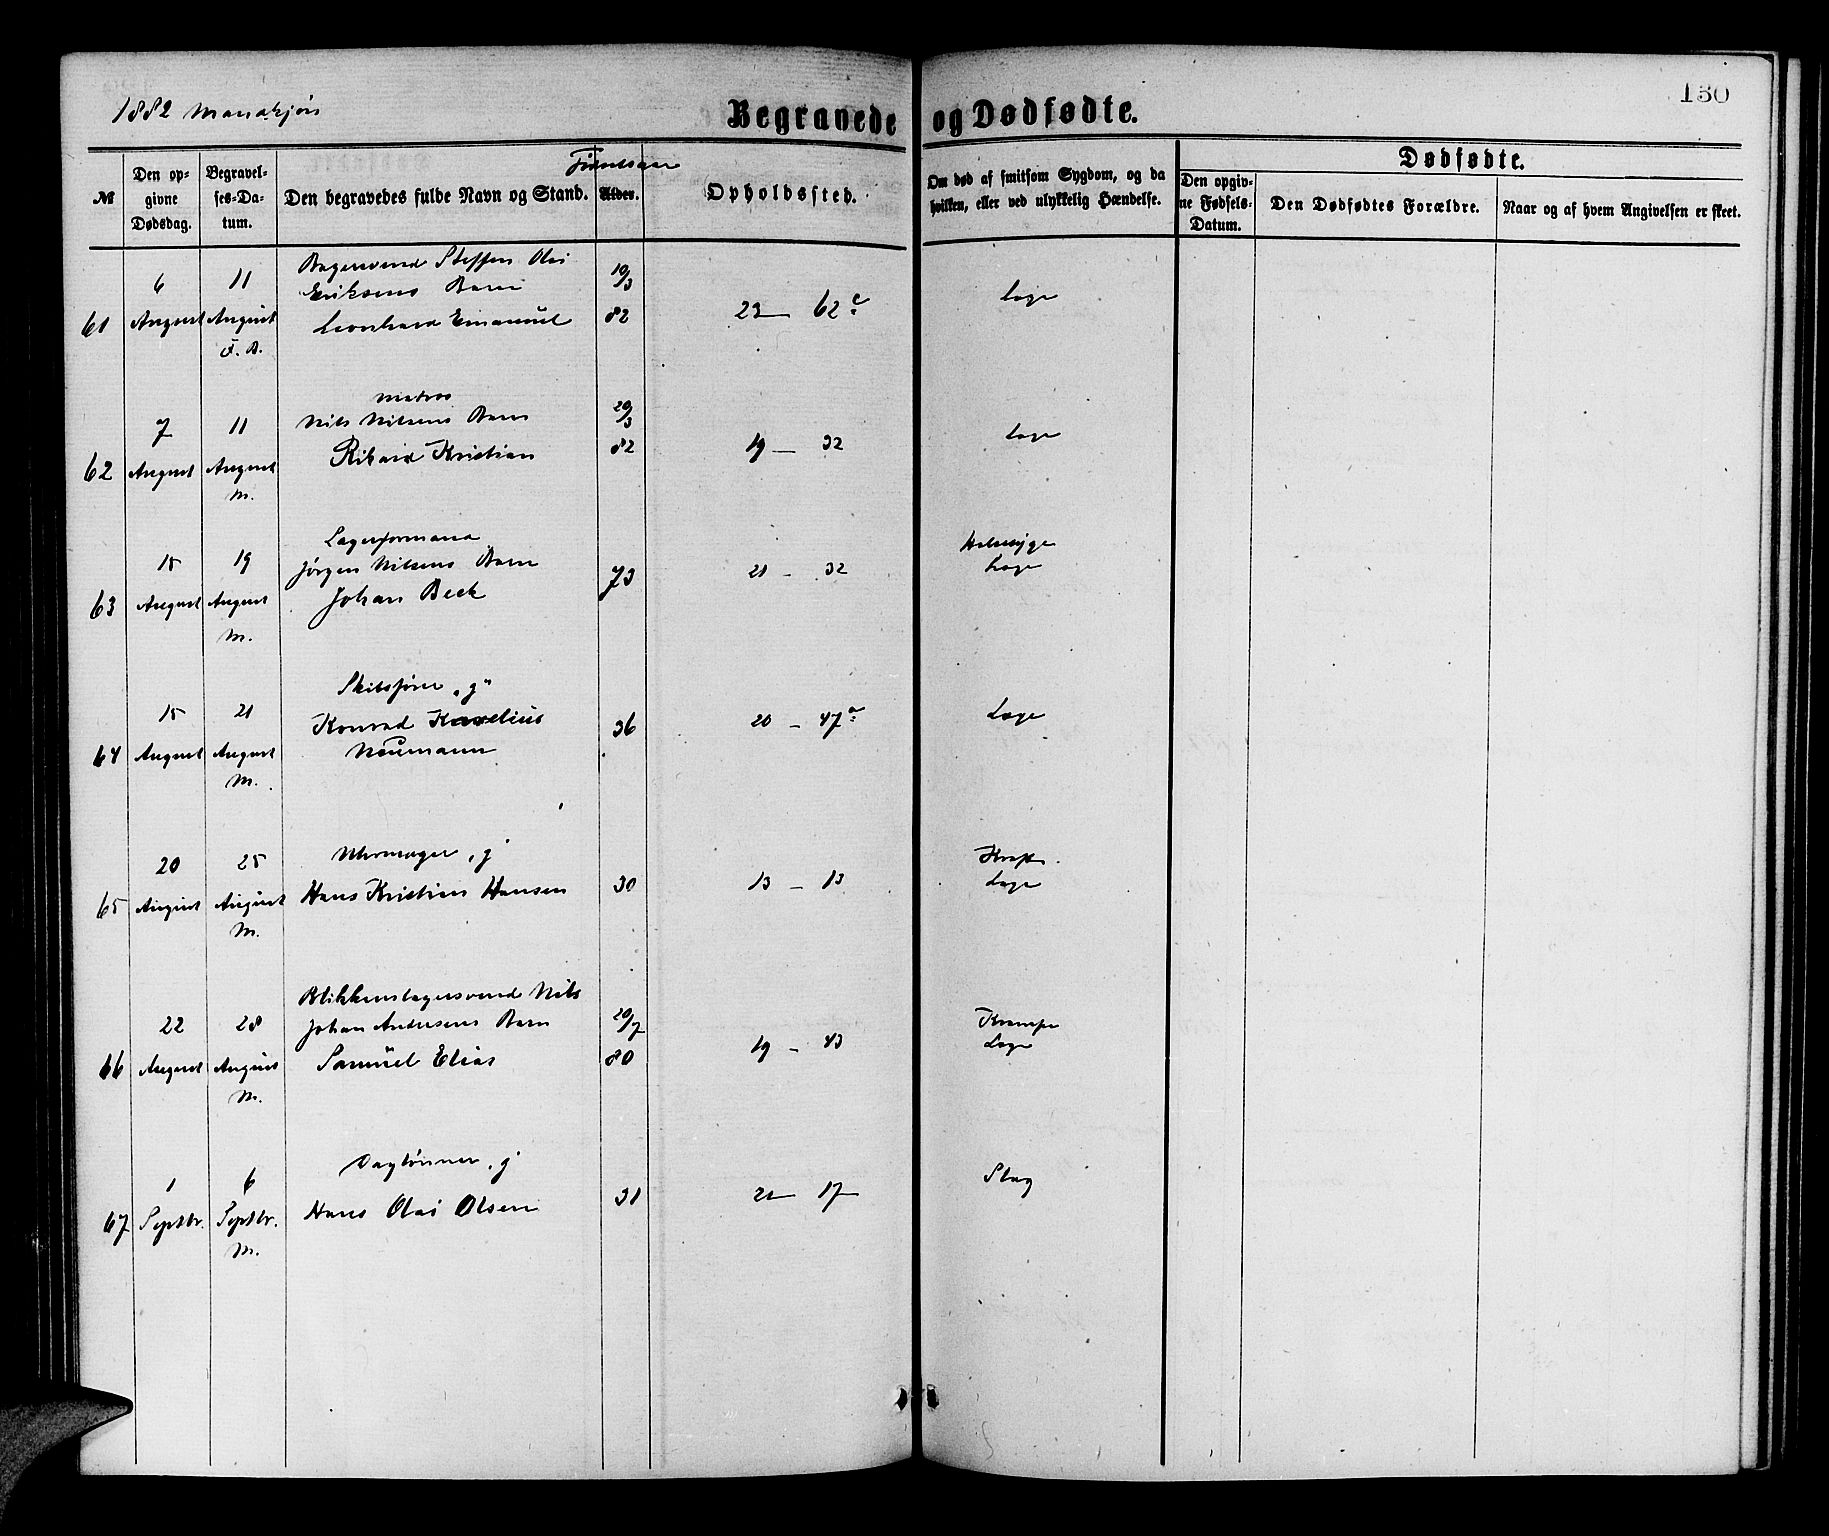 130
1882 Mandkjøn
Begravede og Dødfødte.
№
Den opgivne Dødsdag.
Begravelses-Datum.
Den begravedes fulde Navn og Stand.
Fødselsaar
Alder.
Opholdssted.
Om død af smitsom Sygdom, og da hvilken, eller ved ulykkelig Hændelse.
Dødfødte.
Den opgivne Fødsels-Datum.
Den Dødfødtes Forældre.
Naar og af hvem Angivelsen er skeet.
Bagersvend Steffen Olai
6 11 Eriksens Barn 19/3 Læge
61 August August Leonhard Emanuel 82 23 — 62c
F. B.
Matros
7 11 Nils Nilsens Barn 29/3 Læge
62 August August Rikard Kristian 82 19 — 32
M.
Lagerformand Halssyge
15 19 Jørgen Nilsens Barn 73 21 — 32 Læge
63 August August Johan Beck
M.
Skibsfører „g"
15 21 Konrad Kornelius 36 20 — 47a Læge
64 August August Neumann
M.
20 25 Uhrmager „g" Læge
65 August August Hans Kristian Hansen 30 13 — 13
M.
Blikkenslagersvend Nils
22 28 Johan Andersens Barn 29/7 Krampe
66 August August Samuel Elias 80 19 — 43 Læge
M.
1 6 Daglønner „g" Slag
67 Septbr. Septbr. Hans Olai Olsen 31 21 — 17
M.